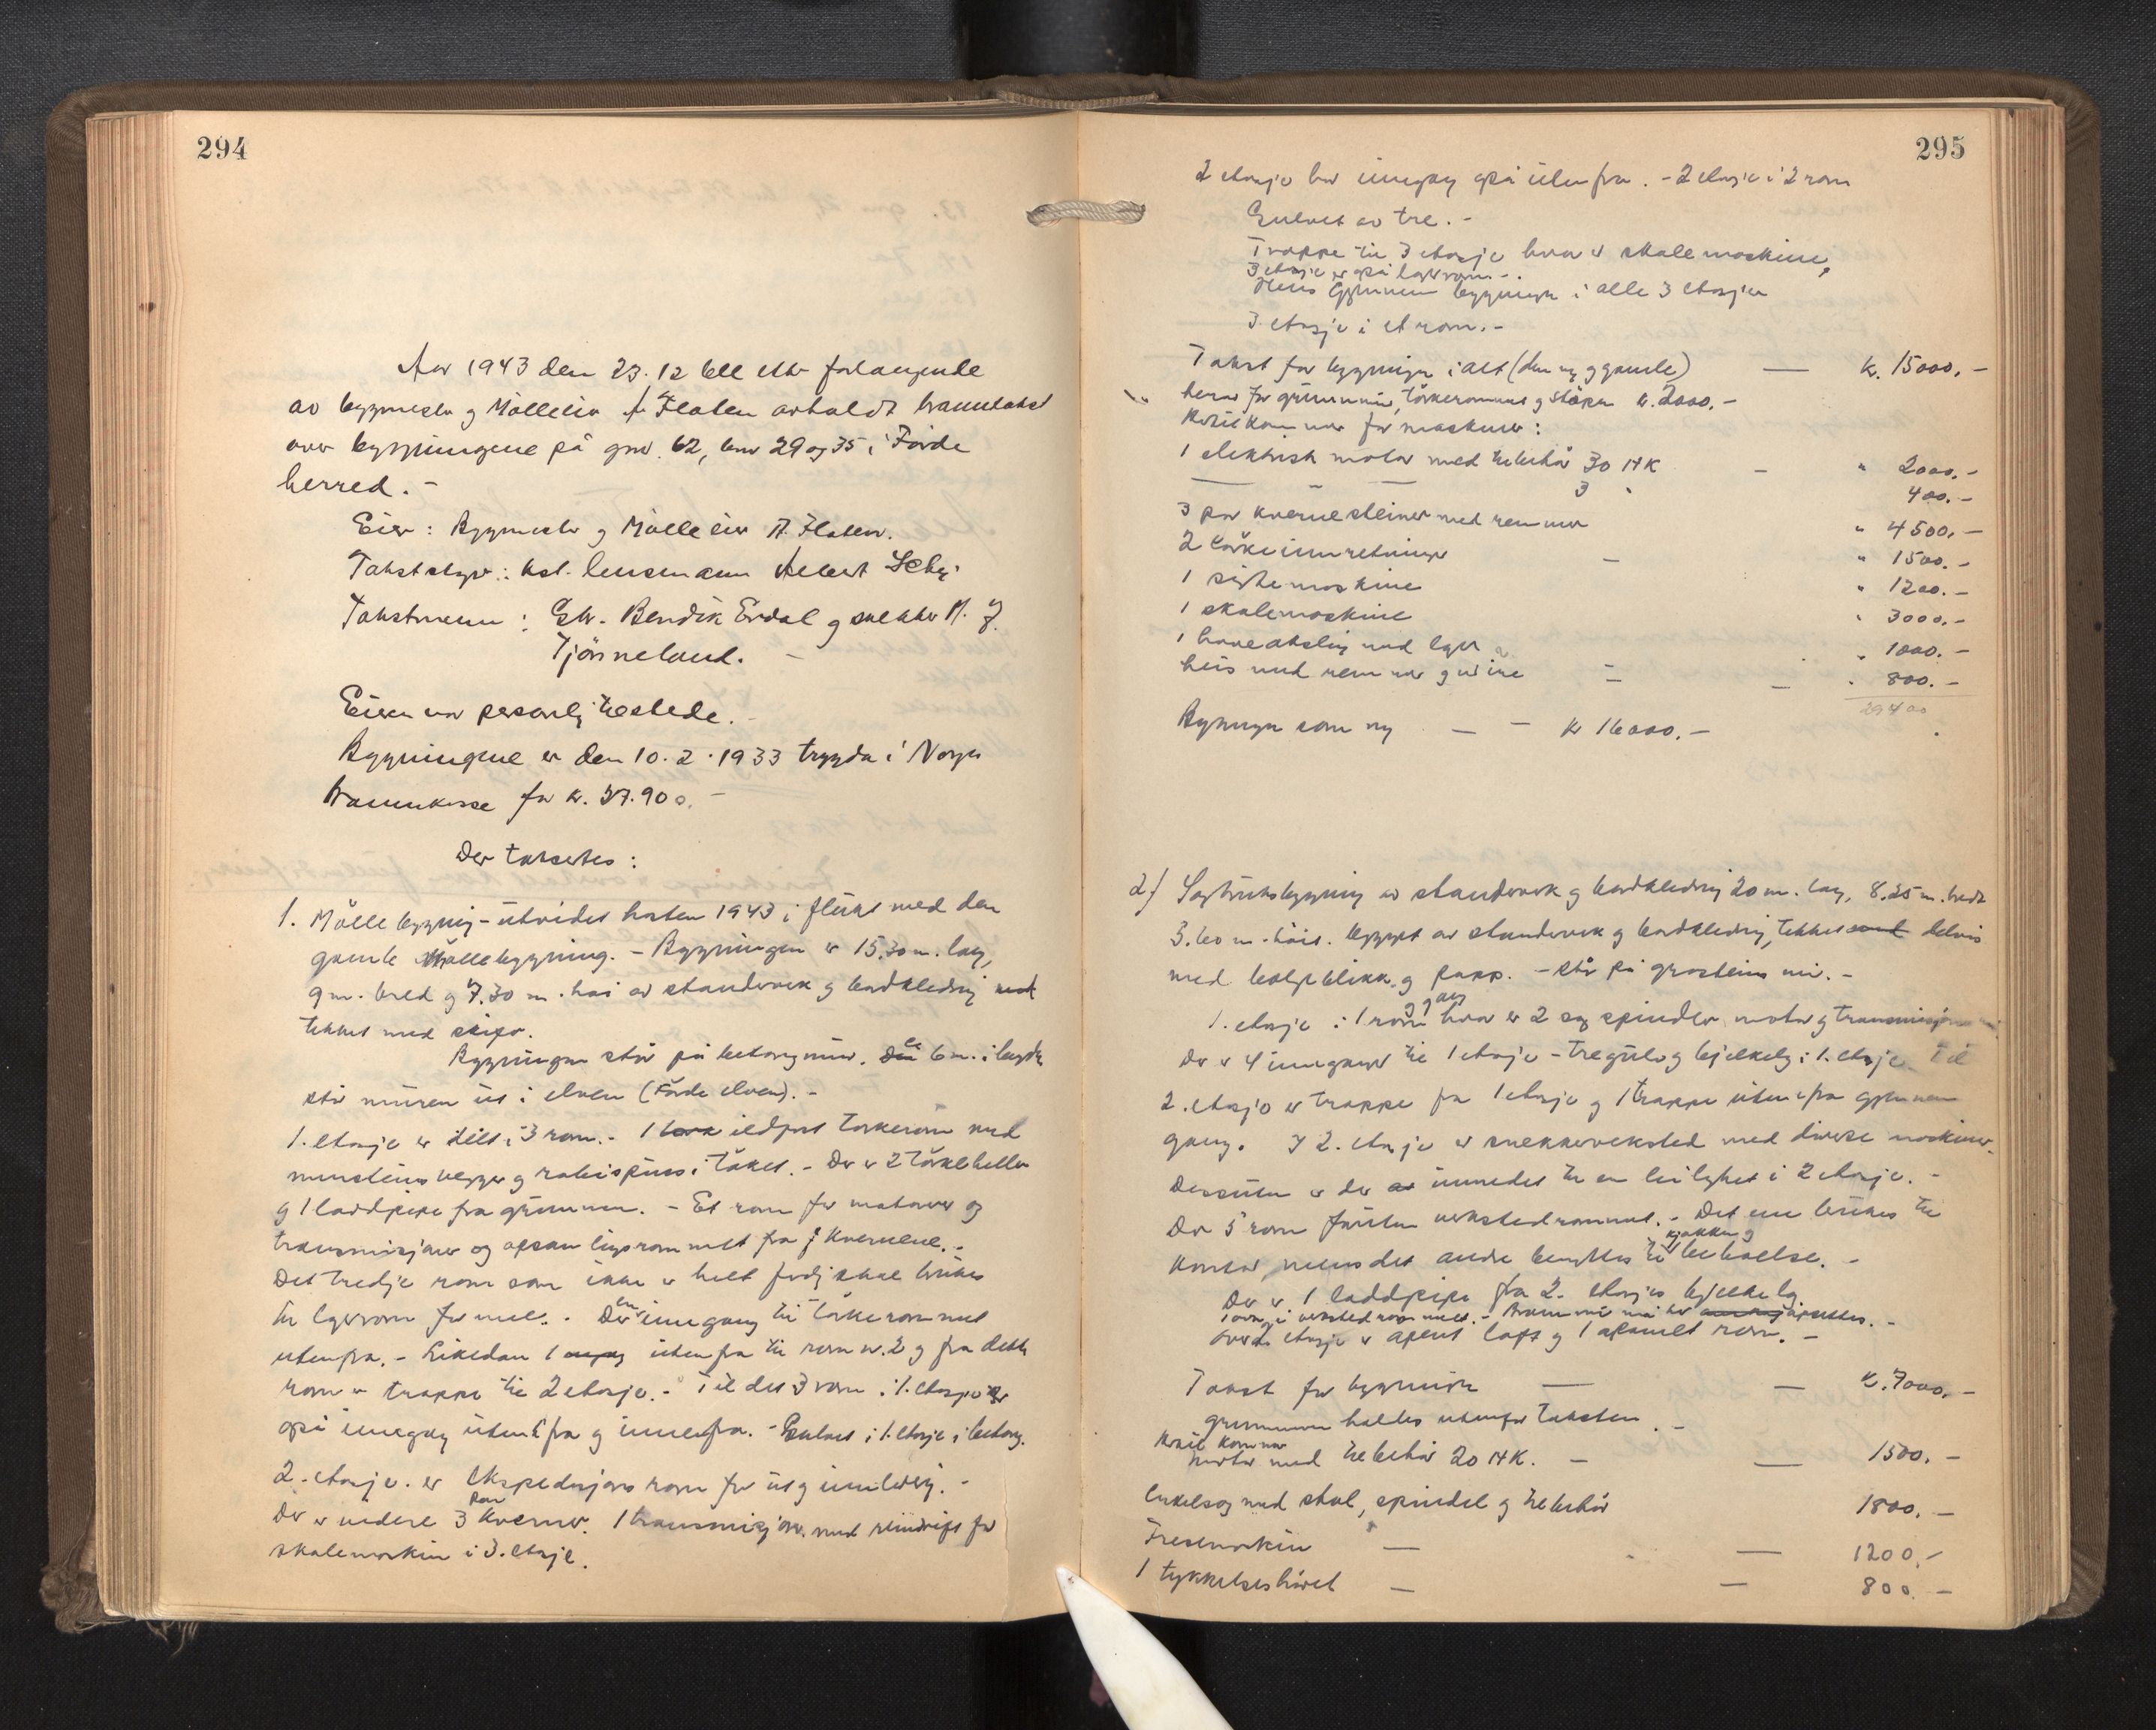 294
Aar 1943 den 23.12 ble etter forlangende
av byggmester og Mölleeier A Flaten avholdt branntakst
over bygningene på gnr. 62, bnr 29 og 35 i Förde
herred. -
Eier: Byggmester og Mölleeier A. Flaten.
Takststyr: kst. lensmann Albert
Takstmenn: Gbr. Bendik Erdal og snekker A. J.
Tjönneland. -
Eieren var personlig tilstede. -
Bygningene er den 10.2.1933 trygda i Norges
Brannkasse for kr. 37.900. -
Der takseres:
1. Möllebygning - utvidet hösten 1943 i flukt med den
gamle Möllebygning. - Bygningen er 15,30 m. lang,
9 m. bred og 7,30 m. höi av standverk og bordkledning
tekket med skifer.
Bygningen står på betongmur. 6 m. i lengde
står muren ut i elven (Förde elven). -
1. etasje er delt i 3 rom. - 1 ildfast törkerom med
murstens vegger og rabispuss i taket. - Der er 2 törkeheller
og 1 laddpipe fra grunnen. - Et rom for motorer og
transmisjoner og opsamlingsrommet fra kvernene. -
Det tredje rom som ikke er helt ferdig skal brukes
til lagerrom for mel. - Der er inngang til törkerommet
utenfra. - Likedan 1 utenfra til rom nr. 2 og fra dette
rom er trappe til 2 etasje. - Til det 3 rom i 1. etasje er
også inngang utenfra og innenfra. - Gulvet i 1. etasje i betong.
2. etasje. er Ekspedisjons rom for ut og innlevering. -
Der er videre 3 par kverner. 1 transmisjon. med reimdrift for
skalemaskin i 3. etasje.
295
2 etasje har inngang også utenfra. - 2 etasje i 2 rom
Gulvet av tre. -
Trappe til 3 etasje hvor er skalemaskine,
3 etasje er også lagerrom -.
Heis gjennem bygningen i alle 3 etasjer
3. etasje i et rom. -
Takst for bygningen i alt (den ny og gamle) — kr. 15000. -
herav for grunnmur, törkerommet og stöpen kr. 2000. -
Hertil kommer for maskiner:
1 elektrisk motor med tilbehör 30 HK - " 2000. -
— — 3 " 400. -
3 par kvernesteiner med remmer " 4500. -
2 törkeinnretninger — " 1500. -
1 siktemaskine " 1200. -
1 skalemaskine " 3000. -
1 hoveaksling med lager " 1000. -
heis med remmer og wire — — " 800. -
29400
Bygningen som ny — — kr 16000. -
2) Sagbruksbygning av standverk og bordkledning 20 m. lang, 8,25 m. bredt
3.60 m. höi. bygget av standverk og bordkledning, tekket delvis
med bölgeblikk og papp. - står på gråsteins mur. -
1. etasje i 1 rom og gang hvor er 2 sag spindler motor og transmisjon
Der er 4 innganger til 1 etasje - tregulv og bjelkelag i 1. etasje. Til
2. etasje er trappe fra 1 etasje og 1 trappe utenfra gjennem
gang. I 2. etasje er snekkerverksted med diverse maskiner.
Dessuten er der innredet til en leilighet i 2 etasje. -
Der 5 rom foruten verkstedrommet. - Det ene brukes til
kjökken og
Kontor, mens det andre benyttes til beboelse. -
Der er 1 laddpipe fra 2. etasjes bjelkelag
1 ovn i verkstedrommet. - Brannmur må her opsettes. -
Over 2. etasje er åpent loft og 1 avdelt rom. -
Takst for bygningen — — kr. 7000. -
grunnmuren holdes utenfor taksten. -
Hertil kommer
motor med tilbehör 20 HK. — — 1500. -
Enkelsag med stol, spindel og tilbehör 1800. -
Fresemaskin — — 1200. -
1 tykkelseshövel — — 800. -